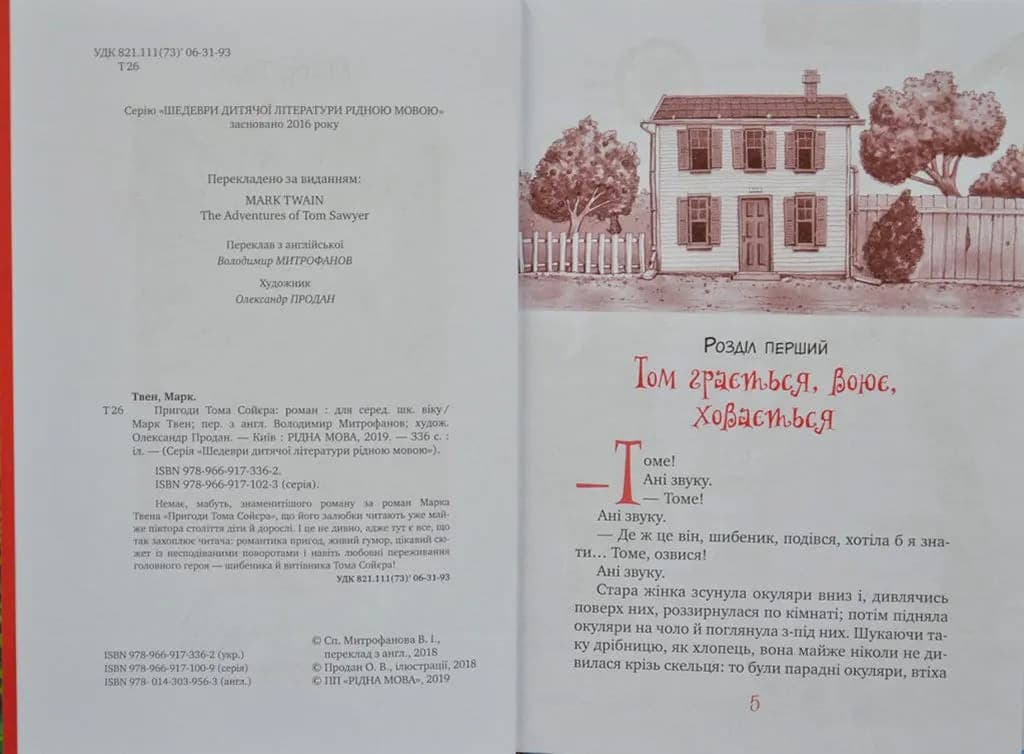 УДК 821.111(73)' 06-31-93
Т26
Серію «ШЕДЕВРИ ДИТЯЧОЇ ЛІТЕРАТУРИ РІДНОЮ МОВОЮ»
засновано 2016 року
Перекладено за виданням:
MARK TWAIN
The Adventures of Tom Sawyer
Переклав з англійської
Володимир МИТРОФАНОВ
Художник
Олександр ПРОДАН
Твен, Марк.
Т26 Пригоди Тома Сойєра: роман : для серед. шк. віку /
Марк Твен; пер. з англ. Володимир Митрофанов; худож.
Олександр Продан. — Київ : РІДНА МОВА, 2019. — 336 с. :
іл. — (Серія «Шедеври дитячої літератури рідною мовою»).
ISBN 978-966-917-336-2.
ISBN 978-966-917-102-3 (серія).
Немає, мабуть, знаменитішого роману за роман Марка
Твена «Пригоди Тома Сойєра», що його залюбки читають уже май-
же півтора століття діти й дорослі. І це не дивно, адже тут є все, що
так захоплює читача: романтика пригод, живий гумор, цікавий сю-
жет із несподіваними поворотами і навіть любовні переживання
головного героя — шибеника й витівника Тома Сойєра!
УДК 821.111(73)' 06-31-93
ISBN 978-966-917-336-2 (укр.)
ISBN 978-966-917-100-9 (серія)
ISBN 978- 014-303-956-3 (англ.)
© Сп. Митрофанова В. І.,
переклад з англ., 2018
© Продан О. В., ілюстрації, 2018
© ПП «РІДНА МОВА», 2019
Розділ перший
Том грається, воює,
ховається
— Томе!
Ані звуку.
— Томе!
Ані звуку.
— Де ж це він, шибеник, подівся, хотіла б я зна-
ти... Томе, озвися!
Ані звуку.
Стара жінка зсунула окуляри вниз і, дивлячись
поверх них, роззирнулася по кімнаті; потім підняла
окуляри на чоло й поглянула з-під них. Шукаючи та-
ку дрібницю, як хлопець, вона майже ніколи не ди-
вилася крізь скельця: то були парадні окуляри, втіха
5